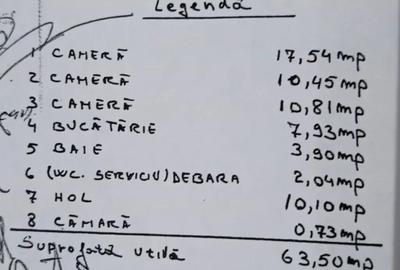 Legendă
1 CAMERĂ 17,54mp
2 CAMERĂ 10,45mp
3 CAMERĂ 10,81mp
4 BUCĂTĂRIE 7,93mp
5 BAIE 3,90mp
6 (WC. SERVICIU) DEBARA 2,04mp
7 HOL 10,10mp
8 CĂMARĂ 0,73mp
Suprafată utilă 63,50mp